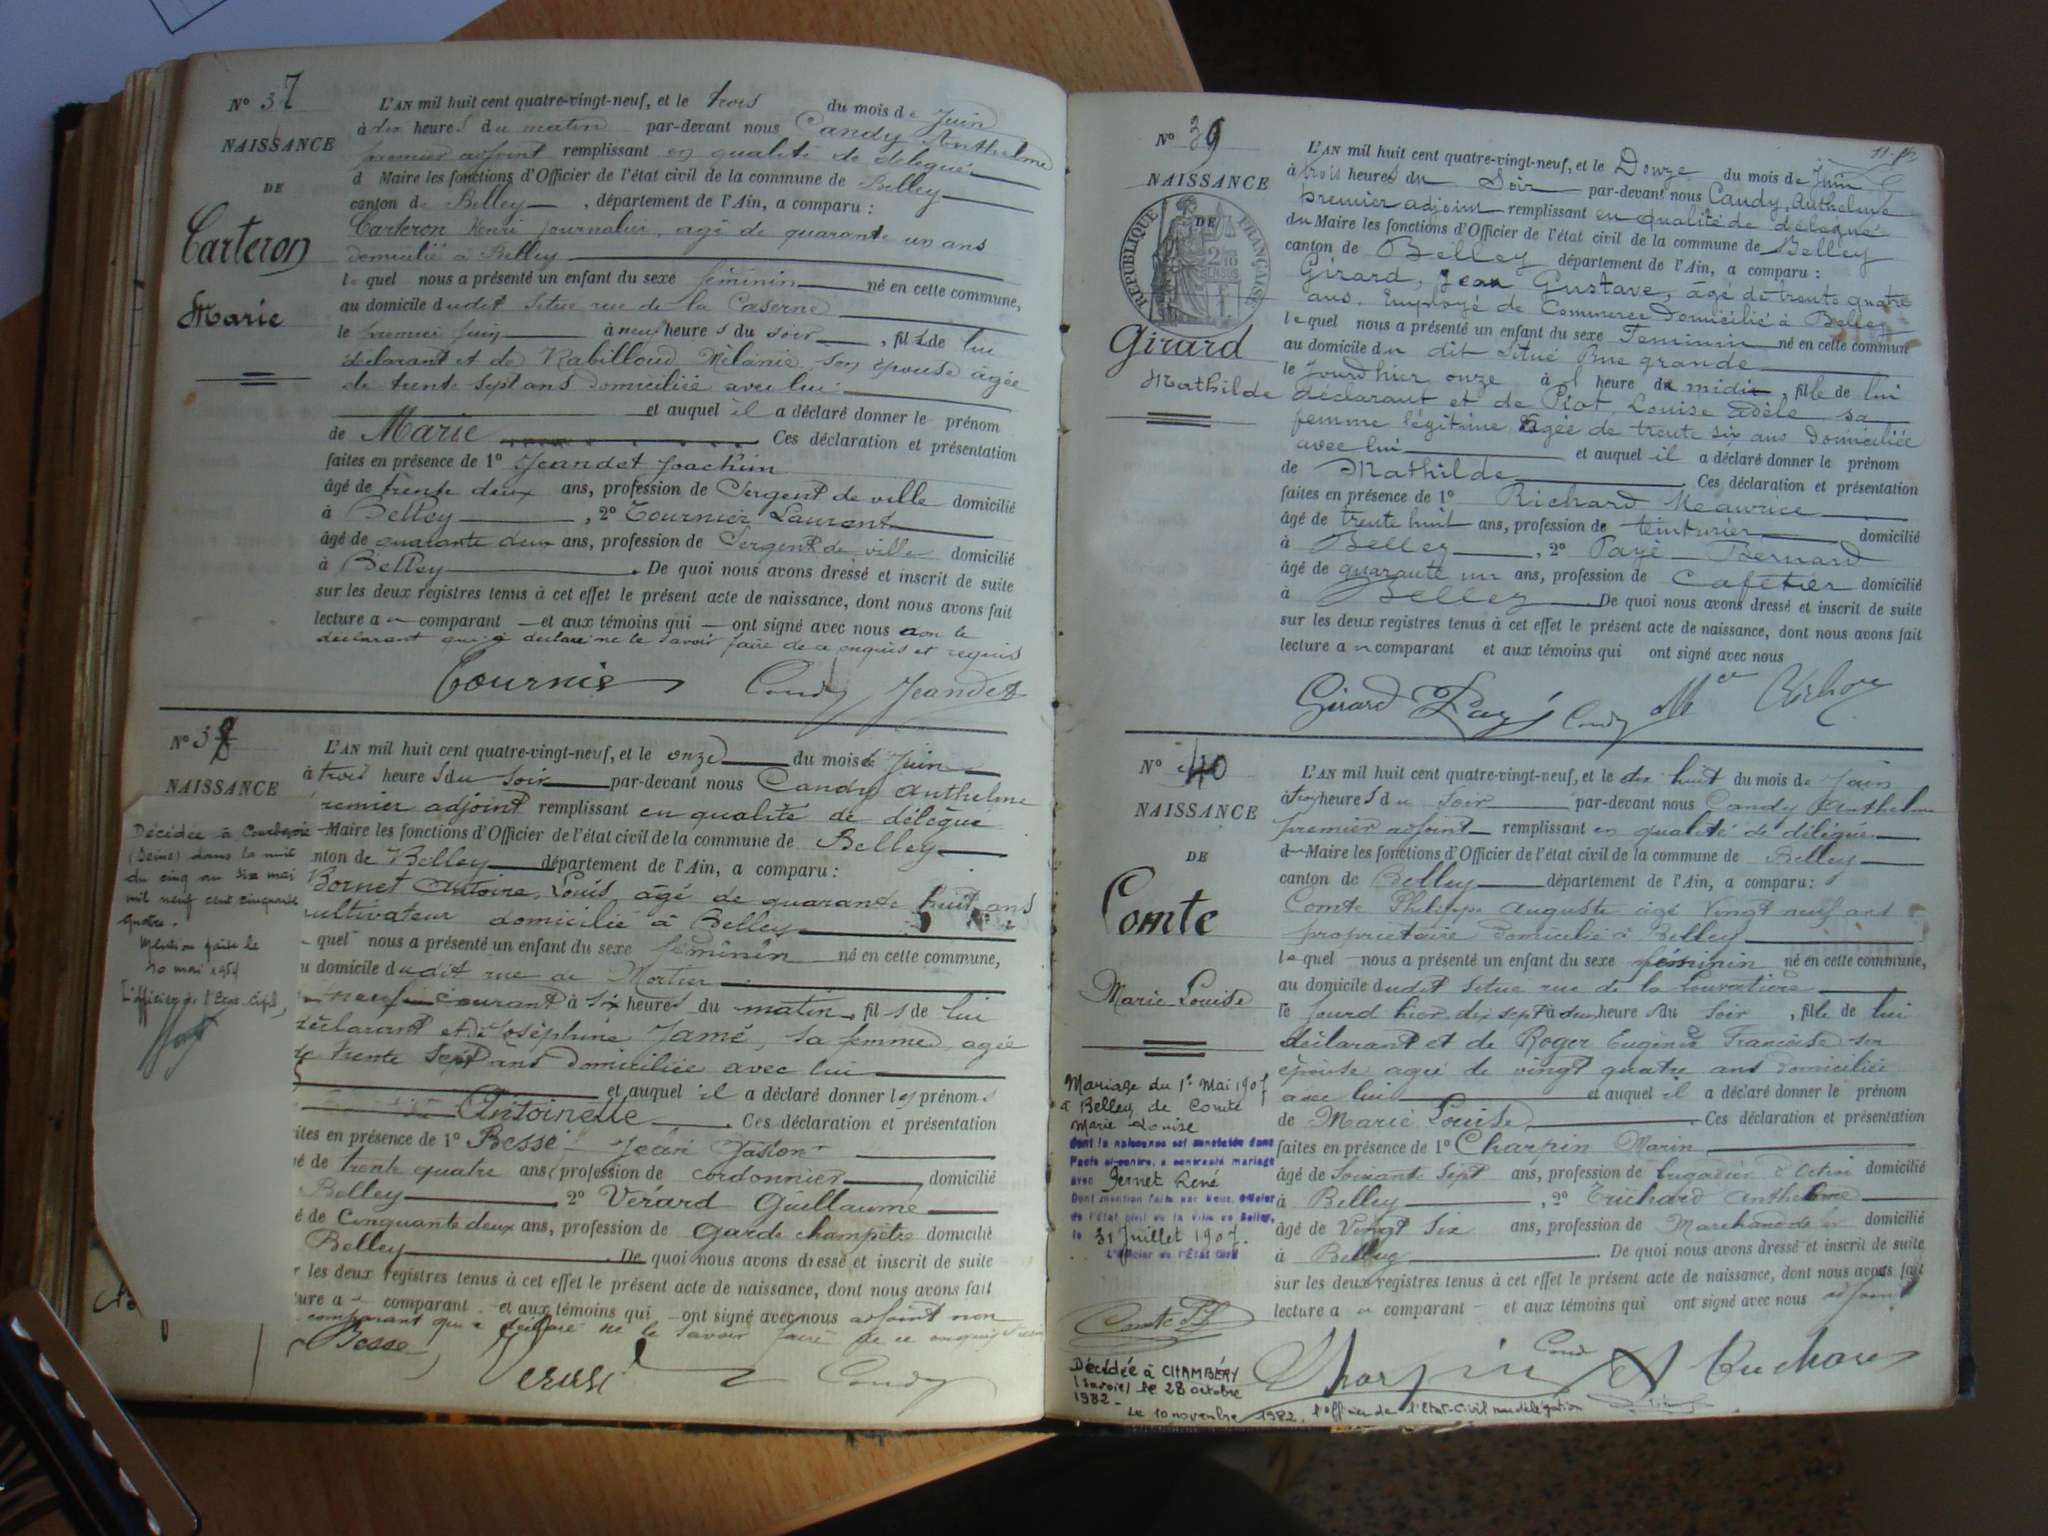 N° 37
NAISSANCE
DE
Carteron
Marie
L'AN mil huit cent quatre-vingt-neuf, et le trois du mois de Juin
à dix heures du matin par-devant nous Candy Anthelme
premier adjoint remplissant en qualité de délégué
d Maire les fonctions d'Officier de l'état civil de la commune de Belley
canton de Belley , département de l'Ain, a comparu :
Carteron Henri journalier, agé de quarante un ans
domicilié à Belley
lequel nous a présenté un enfant du sexe féminin né en cette commune,
au domicile dudit situé rue de la Caserne
le premier juin à neuf heures du soir , fille de lui
déclarant et de Rabilloud Mélanie, son épouse âgée
de trente sept ans domiciliée avec lui
et auquel il a déclaré donner le prénom
de Marie Ces déclaration et présentation
faites en présence de 1° Jeandet Joachim
âgé de trente deux ans, profession de Sergent de ville domicilié
à Belley , 2° Tournier, Laurent
âgé de quarante deux ans, profession de Sergent de ville domicilié
à Belley . De quoi nous avons dressé et inscrit de suite
sur les deux registres tenus à cet effet le présent acte de naissance, dont nous avons fait
lecture au comparant et aux témoins qui ont signé avec nous non le
déclarant qui a déclaré ne le savoir faire de ce enquis et requis
Tournier Candy Jeandet
N° 38
NAISSANCE
Décédée à Courbevoie
(Seine) dans la nuit
du cinq au six mai
mil neuf cent cinquante
quatre.
Mention faite le
10 mai 1954
L'officier de l'Etat-Civil,
L'AN mil huit cent quatre-vingt-neuf, et le onze du mois de Juin
à trois heures du soir par-devant nous Candy Anthelme
remier adjoint remplissant en qualité de délégué
Maire les fonctions d'Officier de l'état civil de la commune de Belley
nton de Belley département de l'Ain, a comparu :
Bornet Antoine, Louis âgé de quarante huit ans
ultivateur domicilié à Belley
quel nous a présenté un enfant du sexe féminin né en cette commune,
u domicile dudit rue du Mortier
neuf courant à six heures du matin, fils de lui
déclarant et de Joséphine Jamé, sa femme, agée
de trente sept ans domiciliée avec lui
et auquel il a déclaré donner les prénoms
Antoinette Ces déclaration et présentation
ites en présence de 1° Besse Jean Gaston
é de trente quatre ans, profession de cordonnier domicilié
Belley 2° Vérard Guillaume
é de Cinquante deux ans, profession de garde champêtre domicilié
Belley De quoi nous avons dressé et inscrit de suite
r les deux registres tenus à cet effet le présent acte de naissance, dont nous avons fait
ure a comparant et aux témoins qui ont signé avec nous adjoint non
comparant qui a déclaré ne le savoir faire de ce enquis
Besse Candy
N° 39
NAISSANCE
DE
RÉPUBLIQUE FRANÇAISE
Girard
Mathilde
L'AN mil huit cent quatre-vingt-neuf, et le Douze du mois de Juin
à trois heures du Soir par-devant nous Candy, Anthelme
premier adjoint remplissant en qualité de délégué
du Maire les fonctions d'Officier de l'état civil de la commune de Belley
canton de Belley département de l'Ain, a comparu :
Girard, Jean Gustave, âgé de trente quatre
ans. Employé de Commerce domicilié à Belley
lequel nous a présenté un enfant du sexe Féminin né en cette commun
au domicile du dit situé Rue grande
le jourd'hier onze à 1 heure du midi fille de lui
déclarant et de Piot, Louise Adèle sa
femme légitime Agée de trente six ans domiciliée
avec lui et auquel il a déclaré donner le prénom
de Mathilde Ces déclaration et présentation
faites en présence de 1° Richard Maurice
âgé de trente huit ans, profession de teinturier domicilié
à Belley , 2° Payé Bernard
âgé de quarante un ans, profession de Cafetier domicilié
à Belley De quoi nous avons dressé et inscrit de suite
sur les deux registres tenus à cet effet le présent acte de naissance, dont nous avons fait
lecture au comparant et aux témoins qui ont signé avec nous
Girard Payé Candy
N° 40
NAISSANCE
DE
Comte
Marie Louise
Mariage du 1er Mai 1907
à Belley de Comte
Marie Louise
dont la naissance est constatée dans
l'acte ci-contre, a contracté mariage
avec Jernet René
Dont mention faite par Nous, Officier
de l'État civil de la Ville de Belley,
le 31 Juillet 1907.
L'Officier de l'État Civil
Comte
Décédée à CHAMBÉRY
(Savoie) le 28 octobre
1982 -
Le 10 novembre 1982, l'officier de l'Etat-Civil par délégation
L'AN mil huit cent quatre-vingt-neuf, et le dix huit du mois de Juin
à trois heures du Soir par-devant nous Candy Anthelme
premier adjoint remplissant en qualité de délégué
du Maire les fonctions d'Officier de l'état civil de la commune de Belley
canton de Belley département de l'Ain, a comparu :
Comte Philippe Auguste âgé Vingt neuf ans
propriétaire domicilié à Belley
lequel nous a présenté un enfant du sexe féminin né en cette commune,
au domicile dudit situé rue de la Louvatière
le jourd'hier dix sept à deux heures du Soir , fille de lui
déclarant et de Roger Eugénie Françoise son
épouse agée de vingt quatre ans domiciliée
avec lui et auquel il a déclaré donner le prénom
de Marie Louise Ces déclaration et présentation
faites en présence de 1° Charpin Marin
âgé de Soixante Sept ans, profession de brigadier d'Octroi domicilié
à Belley , 2° Truchard Anthelme
âgé de Vingt Six ans, profession de Marchand de domicilié
à Belley . De quoi nous avons dressé et inscrit de suite
sur les deux registres tenus à cet effet le présent acte de naissance, dont nous avons fait
lecture au comparant et aux témoins qui ont signé avec nous adjoint
Charpin Cand A Truchard